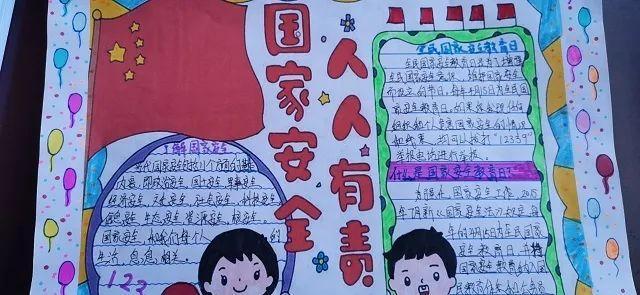 国家安全
人人有责
了解国家安全
当代国家安全包括11个方面的
内容,即政治安全、国土安全、军事安全、
经济安全、文化安全、社会安全、科技安全、
信息安全、生态安全、资源安全、核安全。
国家安全,和我们每个人的
生活,息息相关。
123
全民国家安全教育日
全民国家安全教育日是为了增强
全民国家安全意识,维护国家安全
而设立的节日。每年4月15日为全民国
家安全教育日。如果发现任何
组织和个人危害国家安全的情况
线索,均可以拨打"12339"
举报电话进行举报。
什么是国家安全教育日?
为强化国家安全工作,2015
年7月新《国家安全法》规定每
年的4月15日为全民国家
安全教育日,
国家安全教育